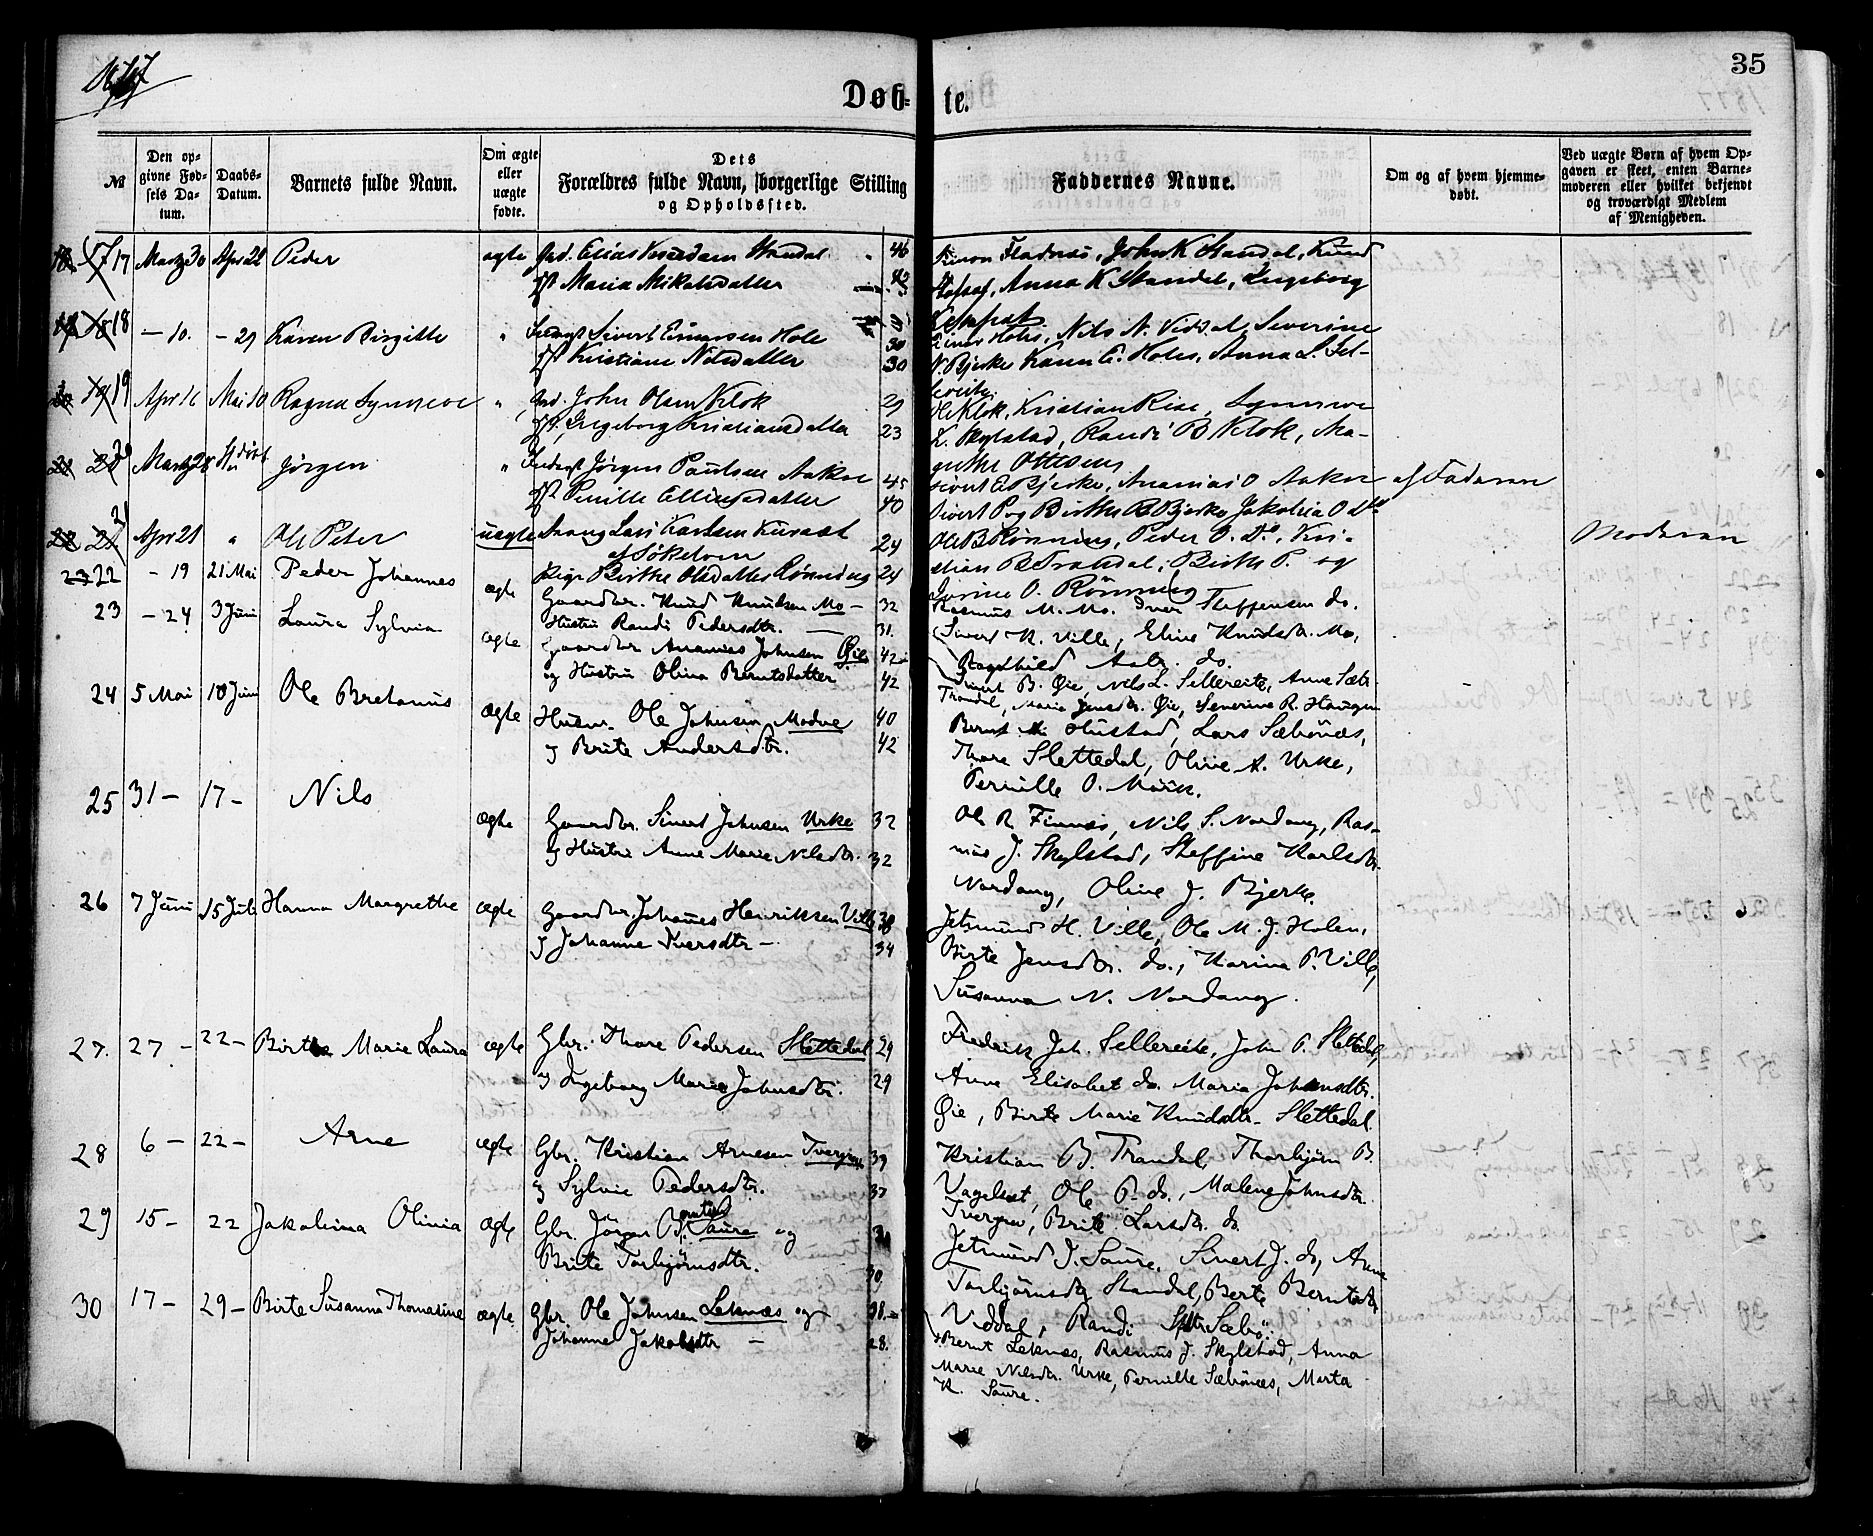 1877
Døb- te.
35
№
Den op-
givne Fød-
sels Da-
tum.
Daabs-
Datum.
Barnets fulde Navn.
Om ægte
eller
uægte
fødte.
Dets
Forældres fulde Navn, borgerlige Stilling
og Opholdssted.
Faddernes Navne.
Om og af hvem hjemme-
døbt.
Ved uægte Børn af hvem Op-
gaven er skeet, enten Barne-
moderen eller hvilket bekjendt
og troværdigt Medlem
af Menigheden.
17 Marts 30 Apr 22 Peder ægte Elias Standal 46
Maria Mikalsdatter
John K Standal, Knud
Anna K Standal, Ingeborg
18 — 10. — 29 Karen Birgitte " Sivert Hole 30
Kristiane Nilsdatter 30
Nils N. Viddal, Severine
N. Bjerke Karen E. Holes, Anna L. Sel-
19 Apr 16 Mai 10 Ragna Synneve " John Olsen Klok 29
Ingeborg Kristiansdatter 23
Ole Klok, Kristian Rise, Synneve
L. Skylstad, Randi B Klok, Ma-
20 Marts 28 Jörgen " Jörgen Paulsen Aakre 45
Pernille Ellingsdatter 40
Sivert E Bjerke, Ananias O Aakre af Faderen
Sivert P og Birthe B Bjerke, Jakobia O Do
21 Apr 21 " Ole Peter uægte Lars Karlsen 24
af Sökelven
Pige Birthe Olsdatter Rönning 24
Ole B Rönning, Peder O. Do, Kri-
stian B Trandal, Birthe P. og
O. Rönning
Moderen
22 — 19 21 Mai Peder Johannes ægte Gaardbr. Knud Knudsen Mo — 32
Hustru Randi Pedersdtr. — 31.
Rasmus M. Mo. Iver Steffensen do.
Sivert K. Ville, Eline Knudsdr. Mo,
Ragnhild do.
23 — 24 3 Juni Laura Sylvia ægte Gaardbr Ananias Johnsen Øie 42
og Hustru Olina Berntsdatter 42
Sivert B. Øie, Nils L. Sellereite, Anne Sæbr
Trandal, Marie Jensdtr. Øie, Severine R. Haugen
24 5 Mai 10 Juni Ole Bretanus ægte Husm. Ole Johnsen Modve 40
og Brite Andersdtr. 42
Bernt Hustad, Lars Sæbönæs,
Thore Slettedal, Oline A. Urke,
Pernille O. Maik.
25 31 — 17 — Nils ægte Gaardbr. Sivert Johnsen Urke 32
og Hustru Anne Marie Nilsdtr. 32
Ole R. Finnes, Nils S. Nordang, Ras-
mus J. Skylstad, Steffine Karlsdtr
Nordang, Oline J. Bjerke.
26 7 Juni 15 Juli Hanna Margrethe ægte Gaardbr. Johannes Henriksen Ville 38
og Johanne Iversdtr — 34
Jetmund H. Ville, Ole M. J. Holen,
Birte Jensdtr. do., Karina P. Ville,
Susanna N. Nordang.
27. 27 — 22 — Birthe Marie Laura ægte Gbr. Thore Pedersen Slettedal 29
og Ingeborg Marie Johnsdtr. 29
Fredrik Joh. Sellereite, John P. Slettedal,
Anne Elisabet do. Maria Johansdtr.
Øie, Birte Marie Knudsdtr. Slettedal.
28 6 — 22 — Arne ægte Gbr. Kristian Arnesen Tvergrov 39
og Sylvie Pedersdtr. 37
Kristian B. Trandal, Thorbjörn B.
Vagelsæt, Ole P. do., Malene Johnsdtr.
Tvergrov, Brite Larsdtr. do
29 15 — 22 Jakobina Olivia ægte Gbr. Jörgen B. Saure og
Brite Torbjörnsdtr. 30
Jetmund J. Saure, Sivert J. do, Anne
Torbjörnsdtr Standal, Berte Berntsdtr
Viddal, Randi Sæbö.
30 17 — 29 — Birte Susanna Thomasine ægte Gbr. Ole Johnsen Leknæs og 38.
Johanne Jakobsdtr — 28.
Bernt Leknæs, Rasmus J. Skylstad, Anna
Marie Nilsdtr. Urke, Pernille Sæbönæs, Marta
K. Saure.